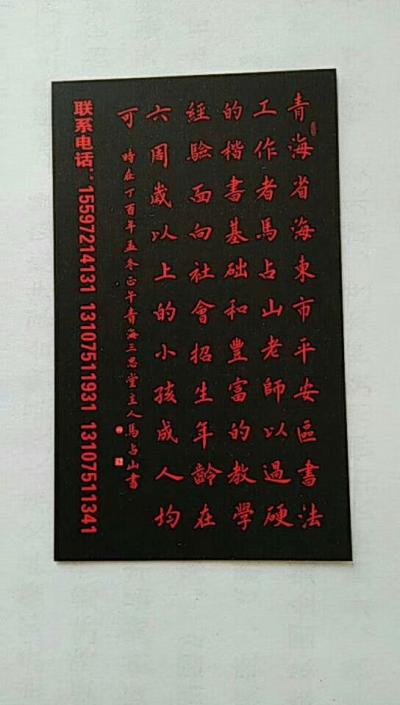 青海省海東市平安區書法
工作者馬占山老師以過硬
的楷書基础和豐富的教學
經驗面向社會招生年齡在
六周歲以上的小孩成人均
可
時在丁酉年孟冬正午青海三思堂主人馬占山書
联系电话：15597214131 13107511931 13107511341